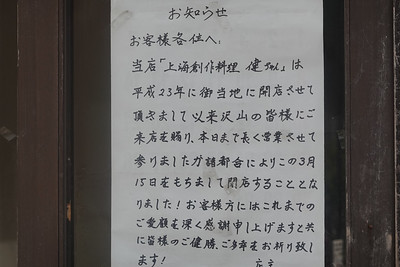 お知らせ
お客様各位へ
当店「上海創作料理 健ちゃん」は
平成23年に御当地に開店させて
頂きまして以来沢山の皆様にご
来店を賜り、本日まで長く営業させて
参りましたが諸都合によりこの3月
15日をもちまして閉店することとな
りました!お客様方にはこれまでの
ご愛顧を深く感謝申し上げますと共
に皆様のご健勝、ご多幸をお祈り致し
ます!
店主